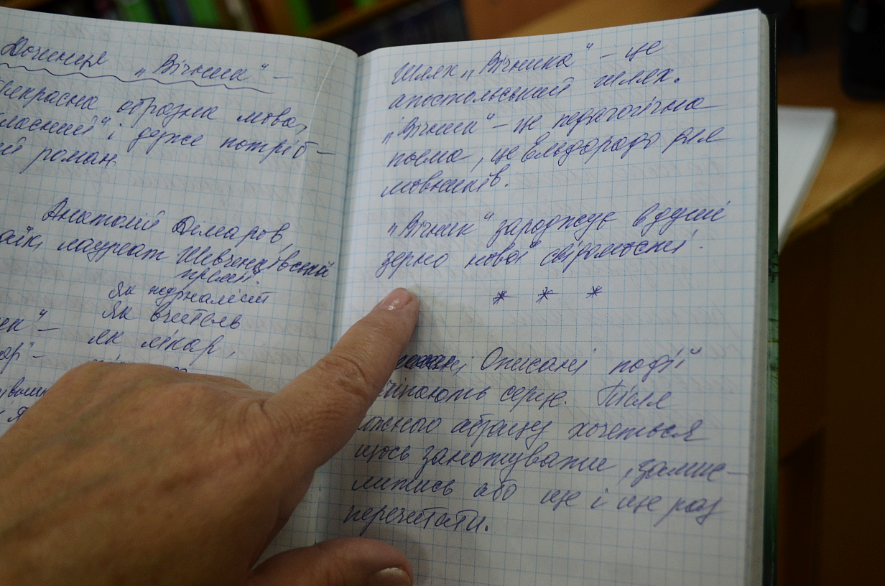 "Вічника" –
образна мова,
і дуже потріб-
роман.
Анатолій Дімаров,
лауреат Шевченківської
премії
Як журналіст
Як вчитель
як лікар,
Шлях „Вічника" – це
апостольський шлях.
„Вічник" – це педагогічна
поема, це Ельдорадо для
мовників.
„Вічник" зароджує в душі
зерно нової свідомості.
* * *
Описані події
серце. Після
абзацу хочеться
щось занотувати, замис-
литись або ще і ще раз
перечитати.